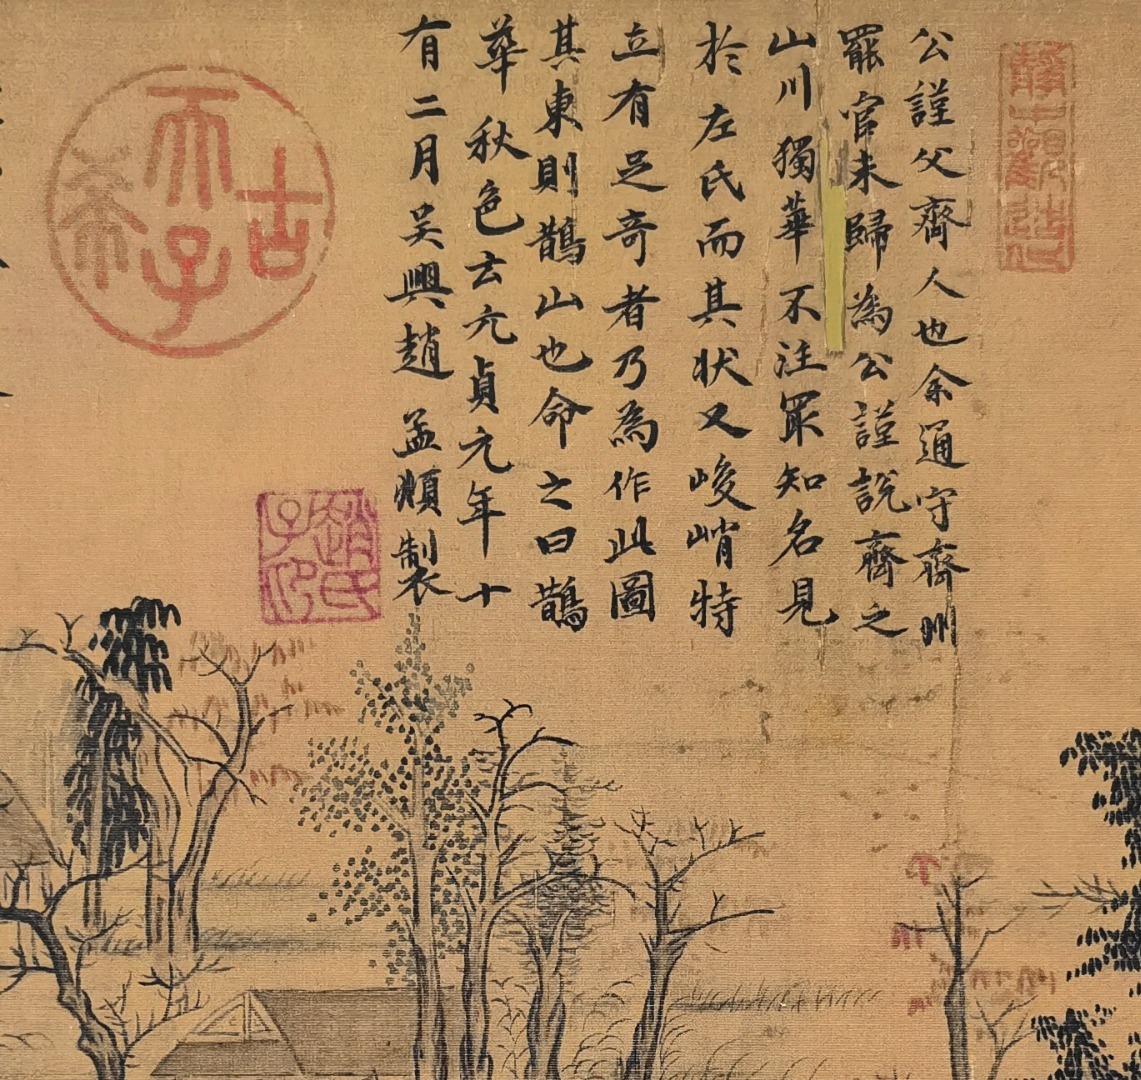 公謹父齊人也余通守齊州
罷官来歸為公謹說齊之
山川獨華不注冣知名見
於左氏而其状又峻峭特
立有足奇者乃為作此圖
其東則鵲山也命之曰鵲
華秋色云元貞元年十
有二月吳興趙孟頫製
趙氏子昂
古希天子